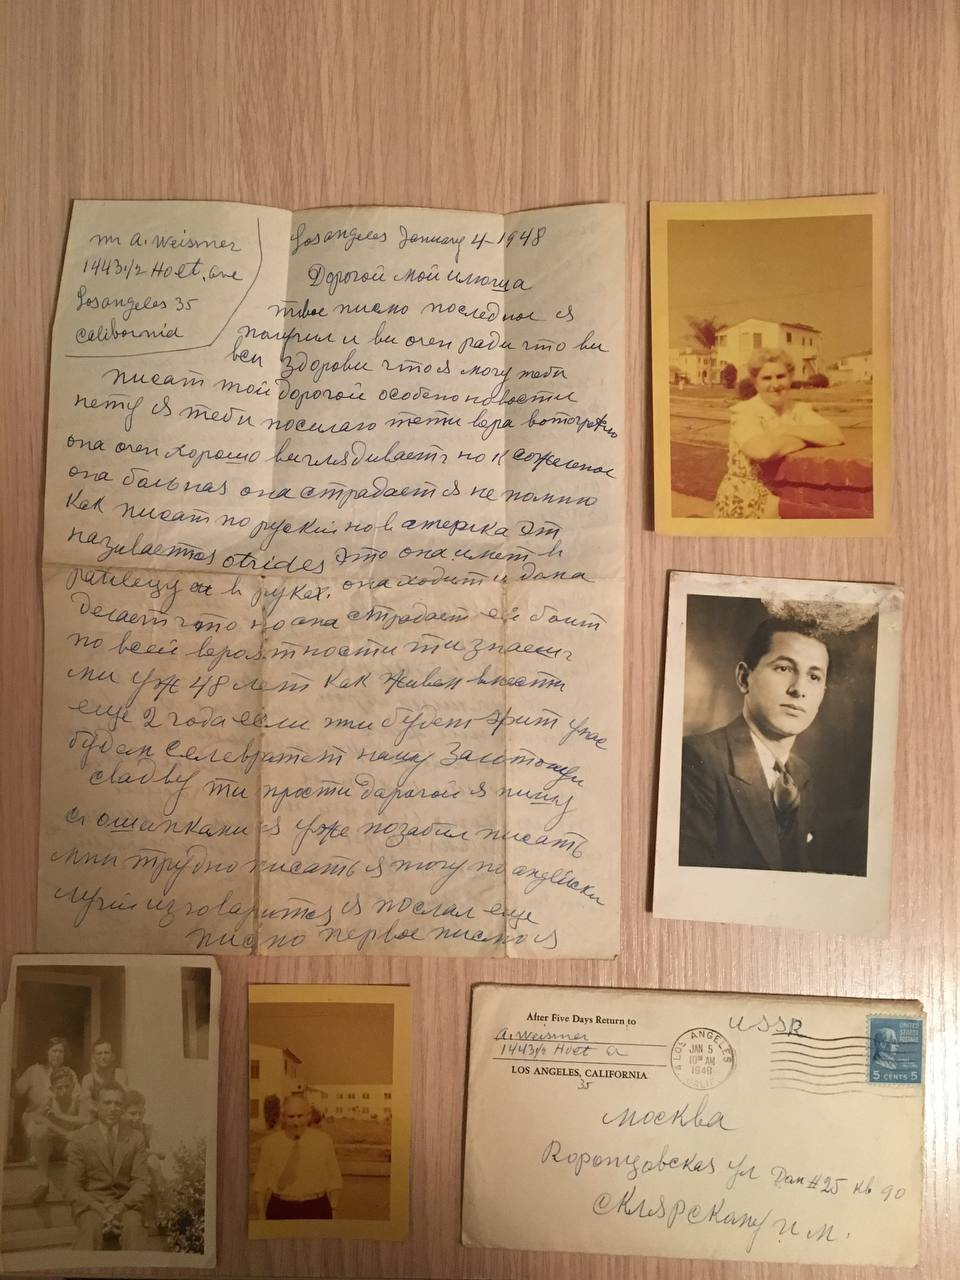 mr a. Weismer
1443 1/2 Holt, ave
Los angeles 35
california
Los angeles January 4-1948
Дорогой мой илюша
твое писмо последное я
получил и ви очен ради что ви
вси здорови что я могу теби
писат мой дорогой особено новости
нету я теби посилаю тети вера вотографию
она очен хорошо виглядивает но к сожеление
она больная она страдает я не помню
как писат по руский но в америка эт
називается это она имет в
в руках. она ходит и дома
делает что но она страдает ей болит
по всей вероятности ти знаеш
ми уже 48 лет как живем вмести
еще 2 года если ми будет жит у нас
будем селевратет нашу Залотощи
свадву ти прости дарогой я пишу
с ошипками я уже позабил писать
мни трудно писать я могу по английски
лучи изговарится я послал еще
писмо первое писмо я
After Five Days Return to
A. Weismer
1443 1/2 Holt a
LOS ANGELES, CALIFORNIA
35
USSR
LOS ANGELES
JAN 5
10 AM
1948
CALIF.
UNITED
STATES
POSTAGE
5 CENTS 5
Москва
Воронцовская ул Дом #25 кв 90
Склярскому И. М.